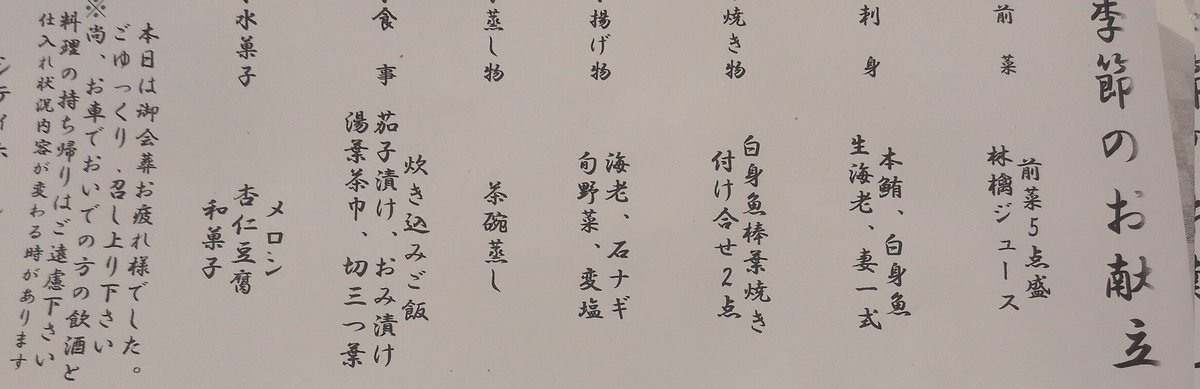 季節のお献立
前菜
前菜5点盛
林檎ジュース
刺身
本鮪、白身魚
生海老、妻一式
焼き物
白身魚棒葉焼き
付け合せ2点
揚げ物
海老、石ナギ
旬野菜、変塩
蒸し物
茶碗蒸し
食事
炊き込みご飯
茄子漬け、おみ漬け
湯葉茶巾、切三つ葉
水菓子
メロン
杏仁豆腐
和菓子
本日は御会葬お疲れ様でした。
ごゆっくり、召し上り下さい
※尚、お車でおいでの方の飲酒と
料理の持ち帰りはご遠慮下さい
仕入れ状況内容が変わる時があります